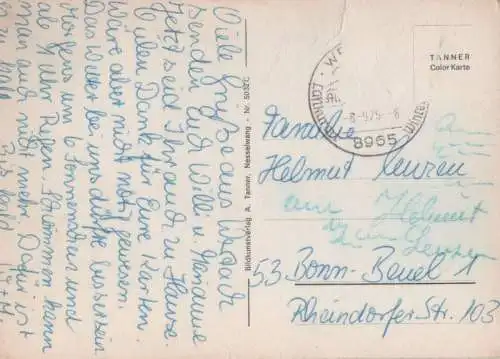 Viele Grüße aus Wertach
senden Euch Willi u. Marianne
Jetzt seid Ihr auch zu Hause.
Vielen Dank für Eure Karten.
Wäre aber nicht nötig gewesen.
Das Wetter bei uns dürfte besser sein.
Morgens um 6 Sonnenschein und
ab 9 Uhr Regen. Schwimmen kann
man auch nicht mehr. Dafür ist
es zu kalt.
Bis bald
Bildkunstverlag A. Tanner, Nesselwang - Nr. 5032C
TANNER
Color Karte
WE
-8.-9.75.-8
8965
Familie
Helmut Lenzen
53 Bonn-Beuel 1
Rheindorfer Str. 103
an Helmut